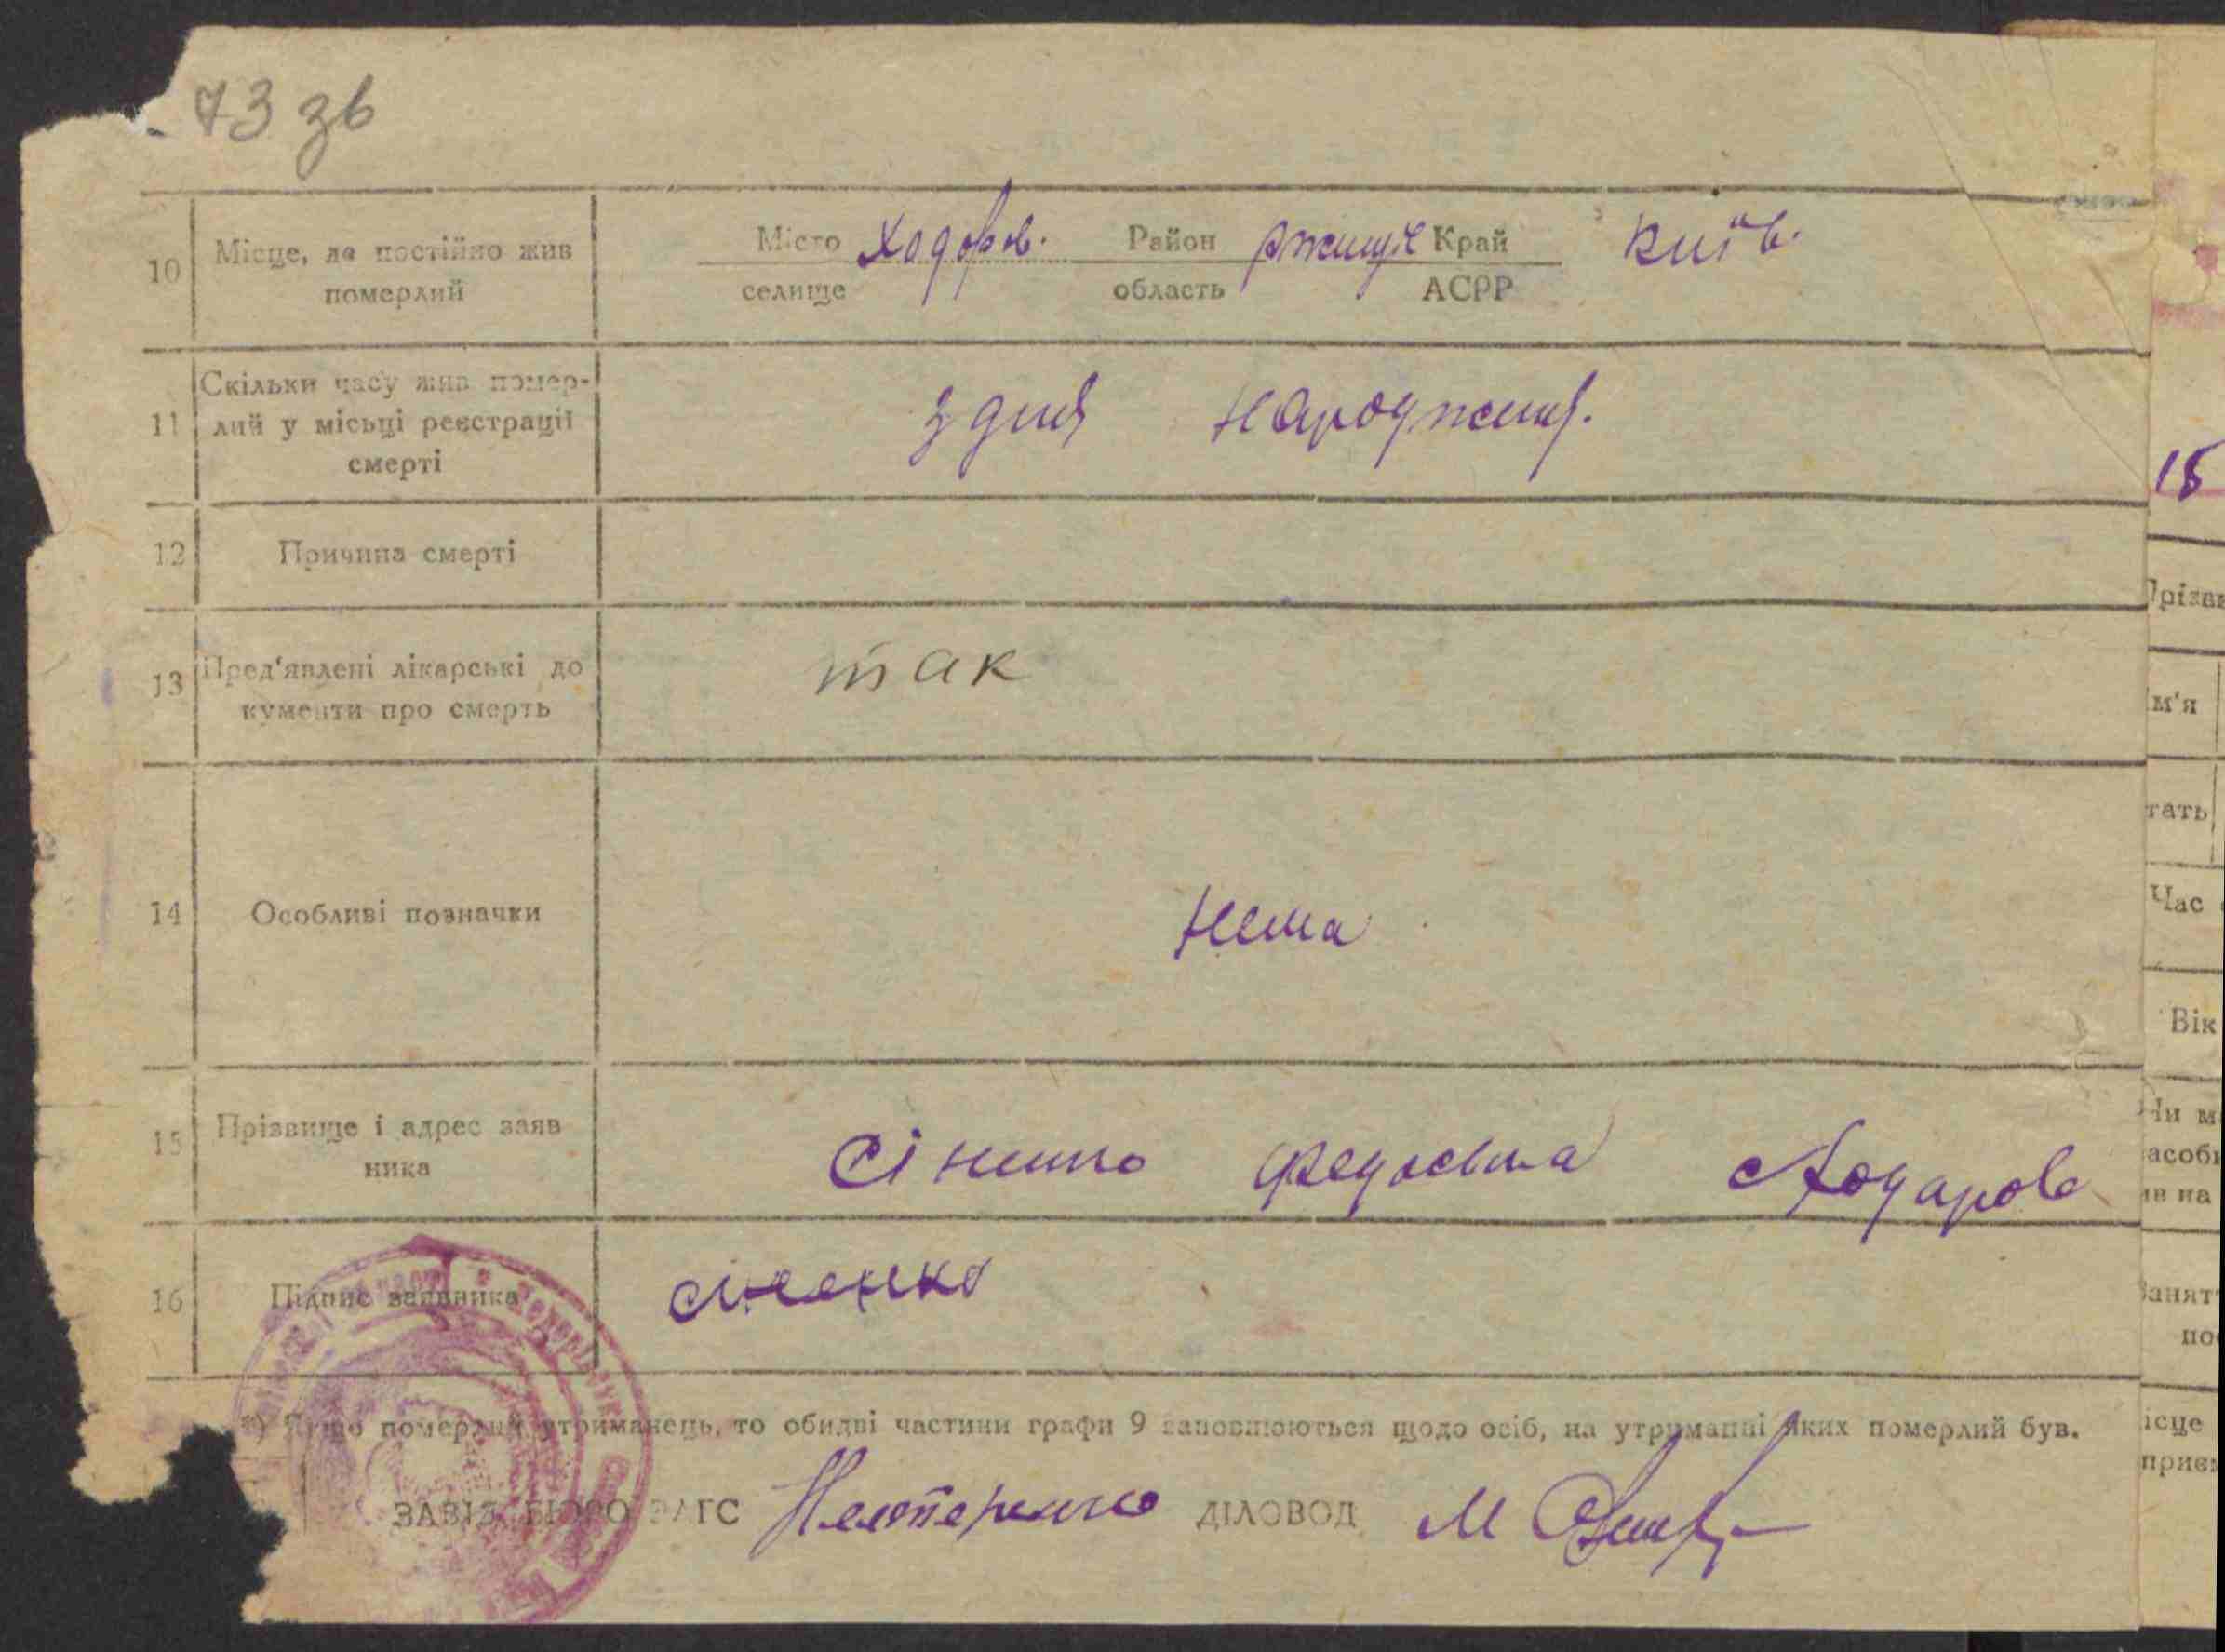 73 зв
10 Місце, де постійно жив померлий
Місто Ходоров. Район Ржищів Край Київ.
селище область АСРР
11 Скільки часу жив помер-
лий у місьці реєстрації
смерті
з дня народженя.
12 Причина смерті
13 Пред'явлені лікарські до
кументи про смерть
так
14 Особливі позначки
нема
15 Прізвище і адрес заяв
ника
Сіненко Федосьиа Ходорово
16 Підпис заявника
сіненко
*) Якщо померлий утриманець, то обидві частини графи 9 заповнюються щодо осіб, на утриманні яких померлий був.
ЗАВІД. БЮРО ЗАГС Нестеренко ДІЛОВОД М
15
Прізви
м'я
тать
Час
Вік
Чи м
асобі
ив на
Занят
по
ісце
приєм